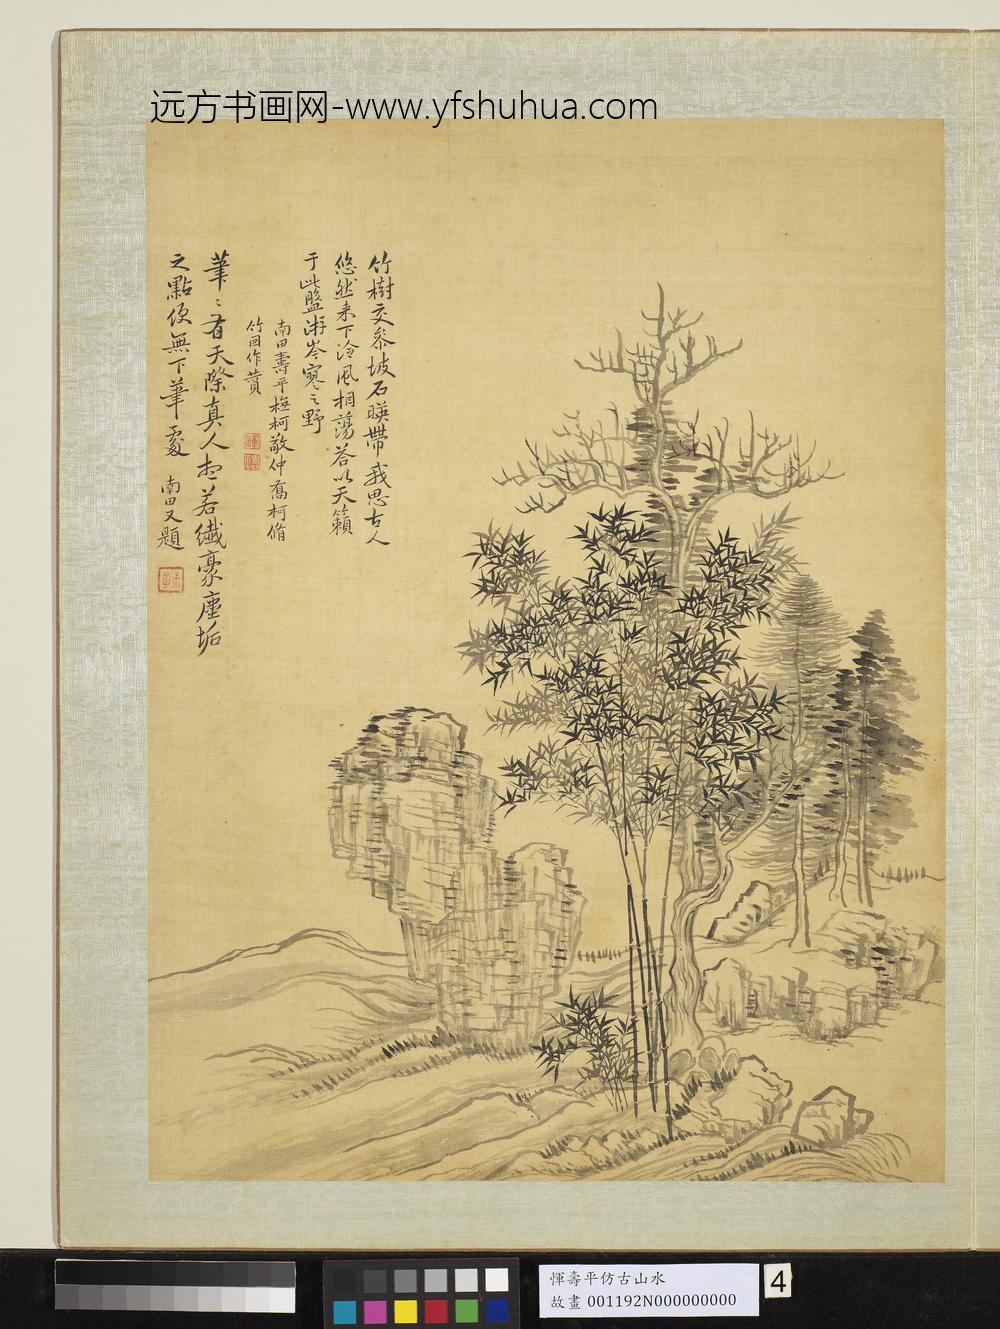 远方书画网-www.yfshuhua.com
竹樹交參坡石暎帶我思古人
悠然来下泠風相蕩答以天籟
于此盤游岑寥之野
南田壽平橅柯敬仲舊柯脩
竹因作贊
筆〻有天際真人想若纖豪塵垢
之點便無下筆處 南田又題
惲壽平仿古山水
故畫 001192N000000000
4